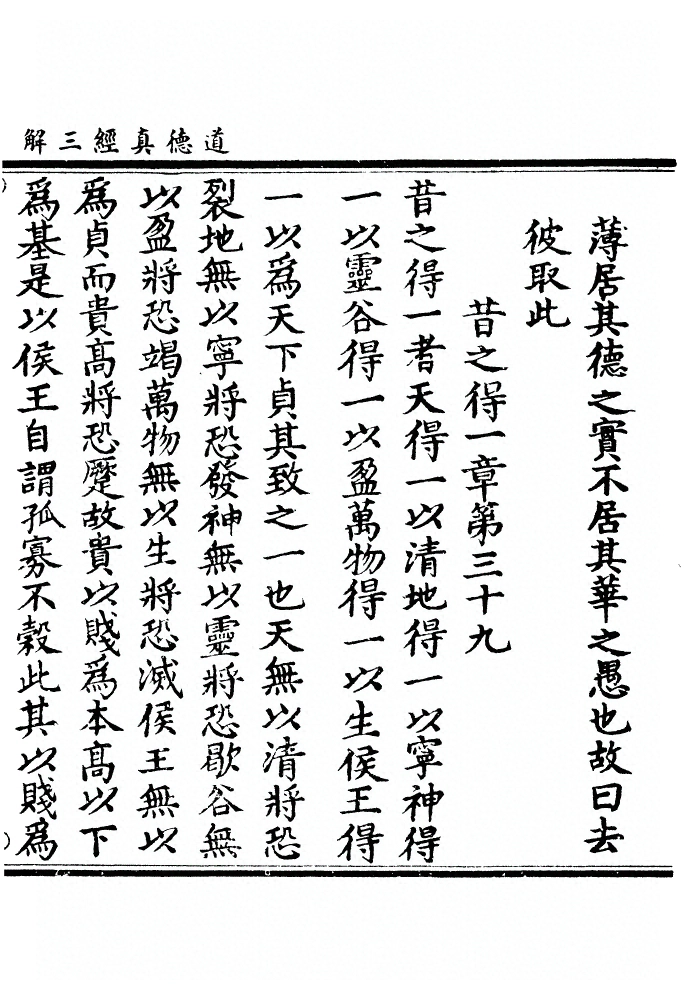 道德真經三解
薄居其德之實不居其華之愚也故曰去
彼取此
昔之得一章第三十九
昔之得一者天得一以清地得一以寧神得
一以靈谷得一以盈萬物得一以生侯王得
一以爲天下貞其致之一也天無以清將恐
裂地無以寧將恐發神無以靈將恐歇谷無
以盈將恐竭萬物無以生將恐滅侯王無以
爲貞而貴高將恐蹷故貴以賤爲本高以下
爲基是以侯王自謂孤寡不穀此其以賤爲